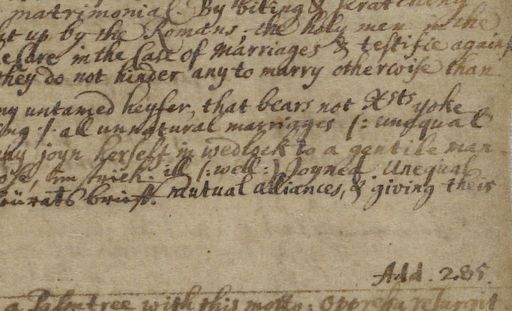 matrimonial By biting & scratching
up by the Romans; the holy men in the
care in the Case of Marriages & testifie against
they do not hinder any to marry otherwise than
untamed heyfer, that bears not Xsts yoke
all unnatural marriages /: unequal
joyn herself in wedlock to a gentile man
ill /: well :/ Joyned. Unequal
brief. Mutual alliances, & giving their
Add. 285
a Palmtree with this motto: Oppressa resurgit